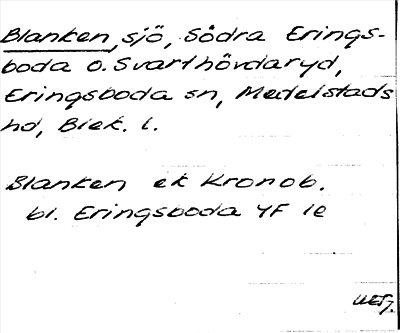 Blanken, sjö, Södra Erings-
boda o. Svarthövdaryd,
Eringsboda sn, Medelstads
hd, Blek. l.
Blanken ek Kronob.
bl. Eringsboda YF 1e